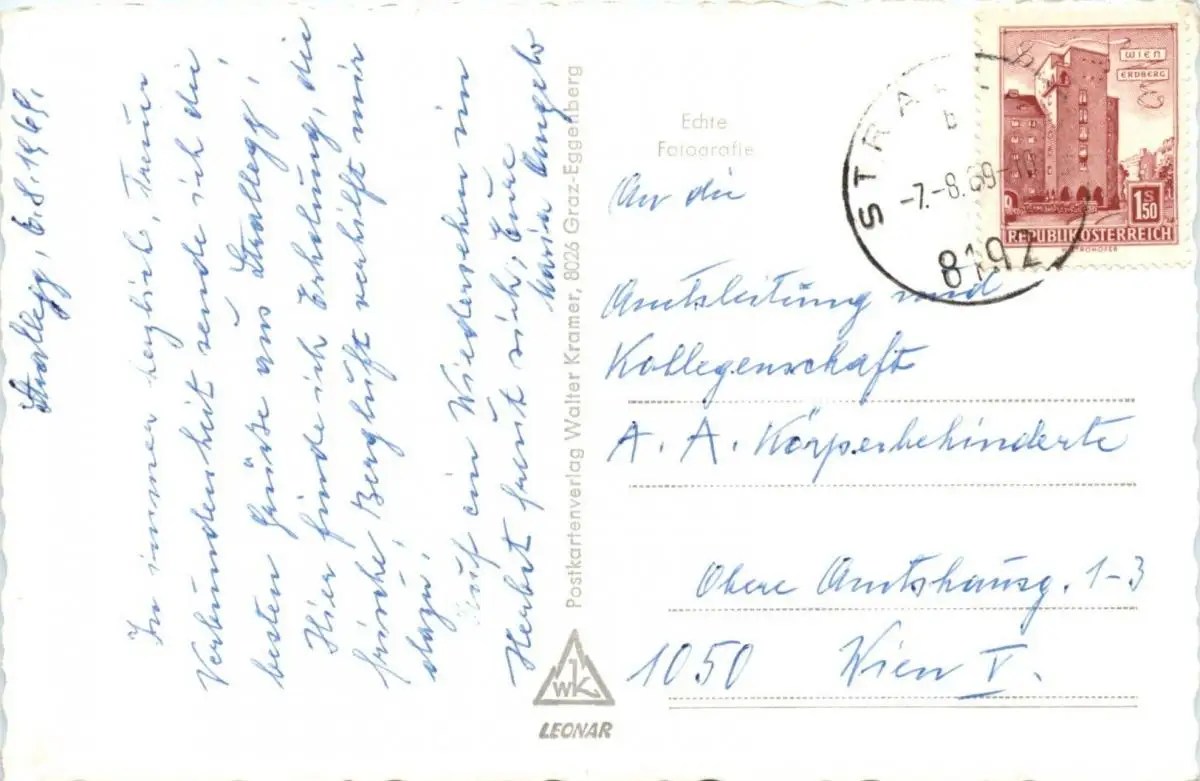 Strallegg, 6.8.1969.
In immer herzlich, Treuer
Verbundenheit sende ich die
besten Grüße aus Strallegg!
Hier finde ich Erholung, die
frische Bergluft verhilft mir
dazu!
Auf ein Wiedersehen im
Herbst freut sich, Eure
Maria Angelo
Postkartenverlag Walter Kramer, 8026 Graz-Eggenberg
WK
LEONAR
Echte
Fotografie
STRA
b
-7.-8.69
8192
WIEN
ERDBERG
S
1.50
REPUBLIK ÖSTERREICH
An die
Amtsleitung und
Kollegenschaft
A. A. Körperbehinderte
Obere Amtshausg. 1-3
1050 Wien V.